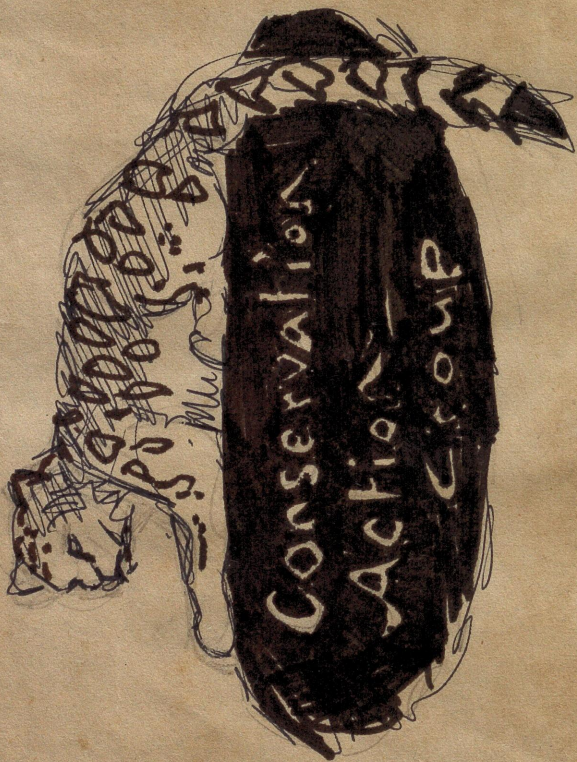 Conservation
Action
Group